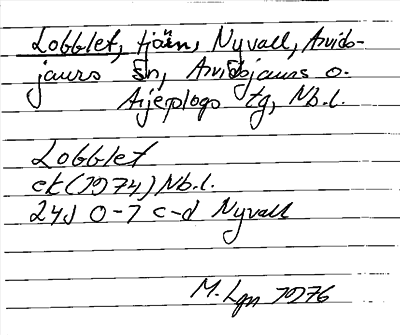 Lobblet, tjärn, Nyvall, Arvids-
jaurs sn, Arvidsjaurs o.
Arjeplogs tg, Nb.l.
Lobblet
ek (1974) Nb.l.
24J 0-1 c-d Nyvall
M. Lgn 1976